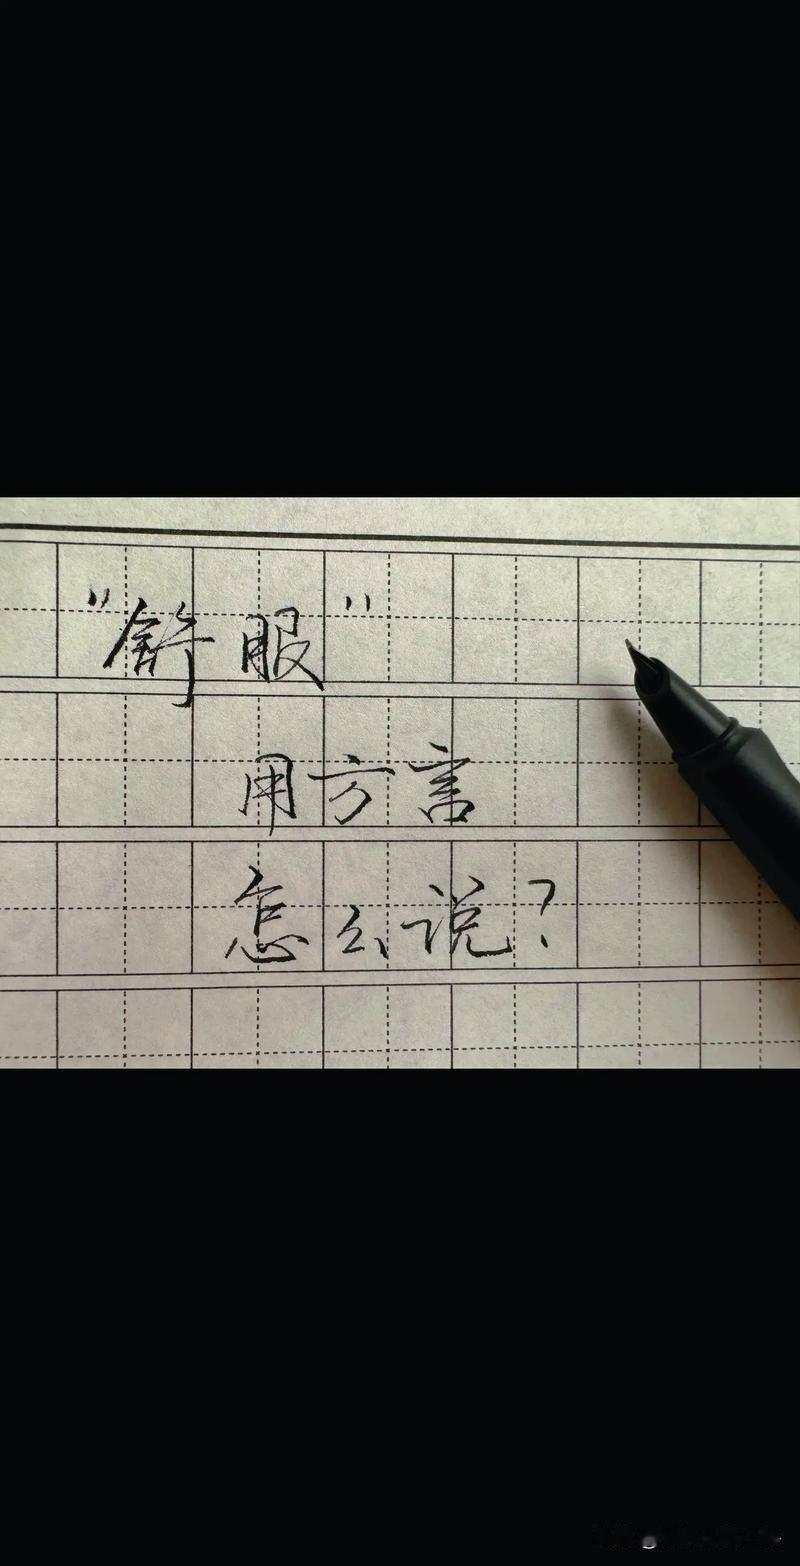 "舒服"
用方言
怎么说?